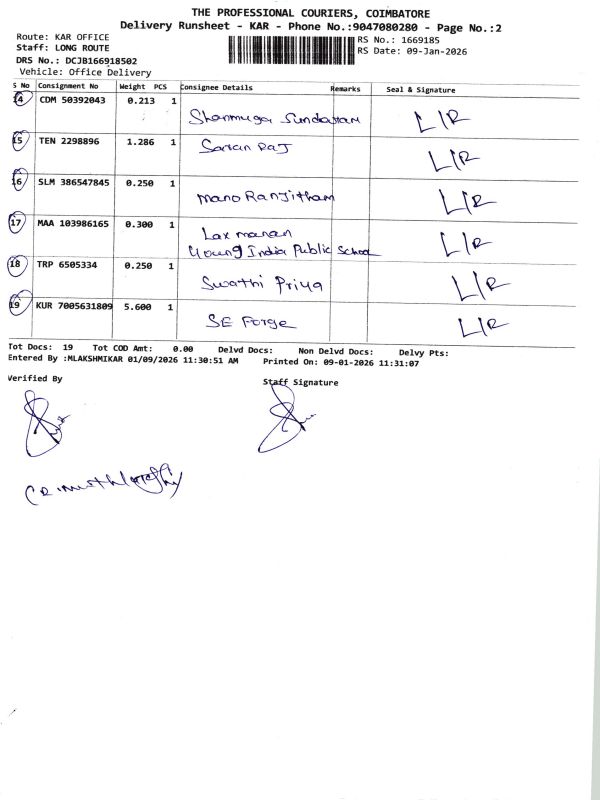 THE PROFESSIONAL COURIERS, COIMBATORE
Delivery Runsheet - KAR - Phone No.:9047080280 - Page No.:2
Route: KAR OFFICE
RS No.: 1669185
Staff: LONG ROUTE
RS Date: 09-Jan-2026
DRS No.: DCJB166918502
Vehicle: Office Delivery
S No Consignment No Weight PCS Consignee Details Remarks Seal & Signature
14 CDM 50392043 0.213 1 Shanmuga Sundaram L/R
15 TEN 2298896 1.286 1 Saran Raj L/R
16 SLM 386547845 0.250 1 Mano Ranjitham L/R
17 MAA 103986165 0.300 1 Laxmanan L/R
Young India Public School
18 TRP 6505334 0.250 1 Swathi Priya L/R
19 KUR 7005631809 5.600 1 SE Forge L/R
Tot Docs: 19 Tot COD Amt: 0.00 Delvd Docs: Non Delvd Docs: Delvy Pts:
Entered By :MLAKSHMIKAR 01/09/2026 11:30:51 AM Printed On: 09-01-2026 11:31:07
Verified By
Staff Signature